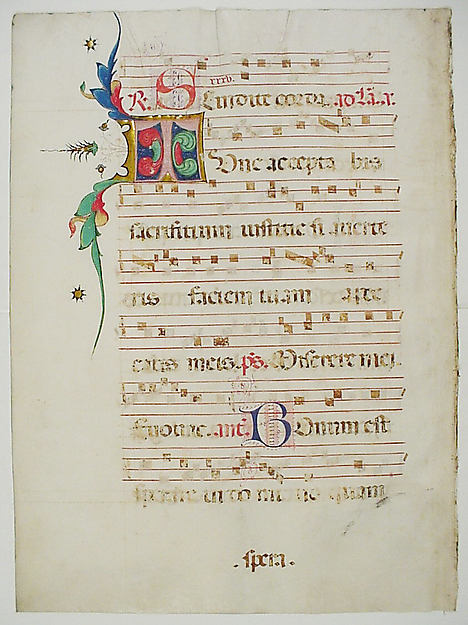 xxxv.
R. Scindite corda. ad
Tunc accepta bis
sacrificium iustitie si averte
ris faciem tuam a pec
catis meis. ps. Miserere mei.
Euouae. ant. Bonum est
sperare in do mi no quam